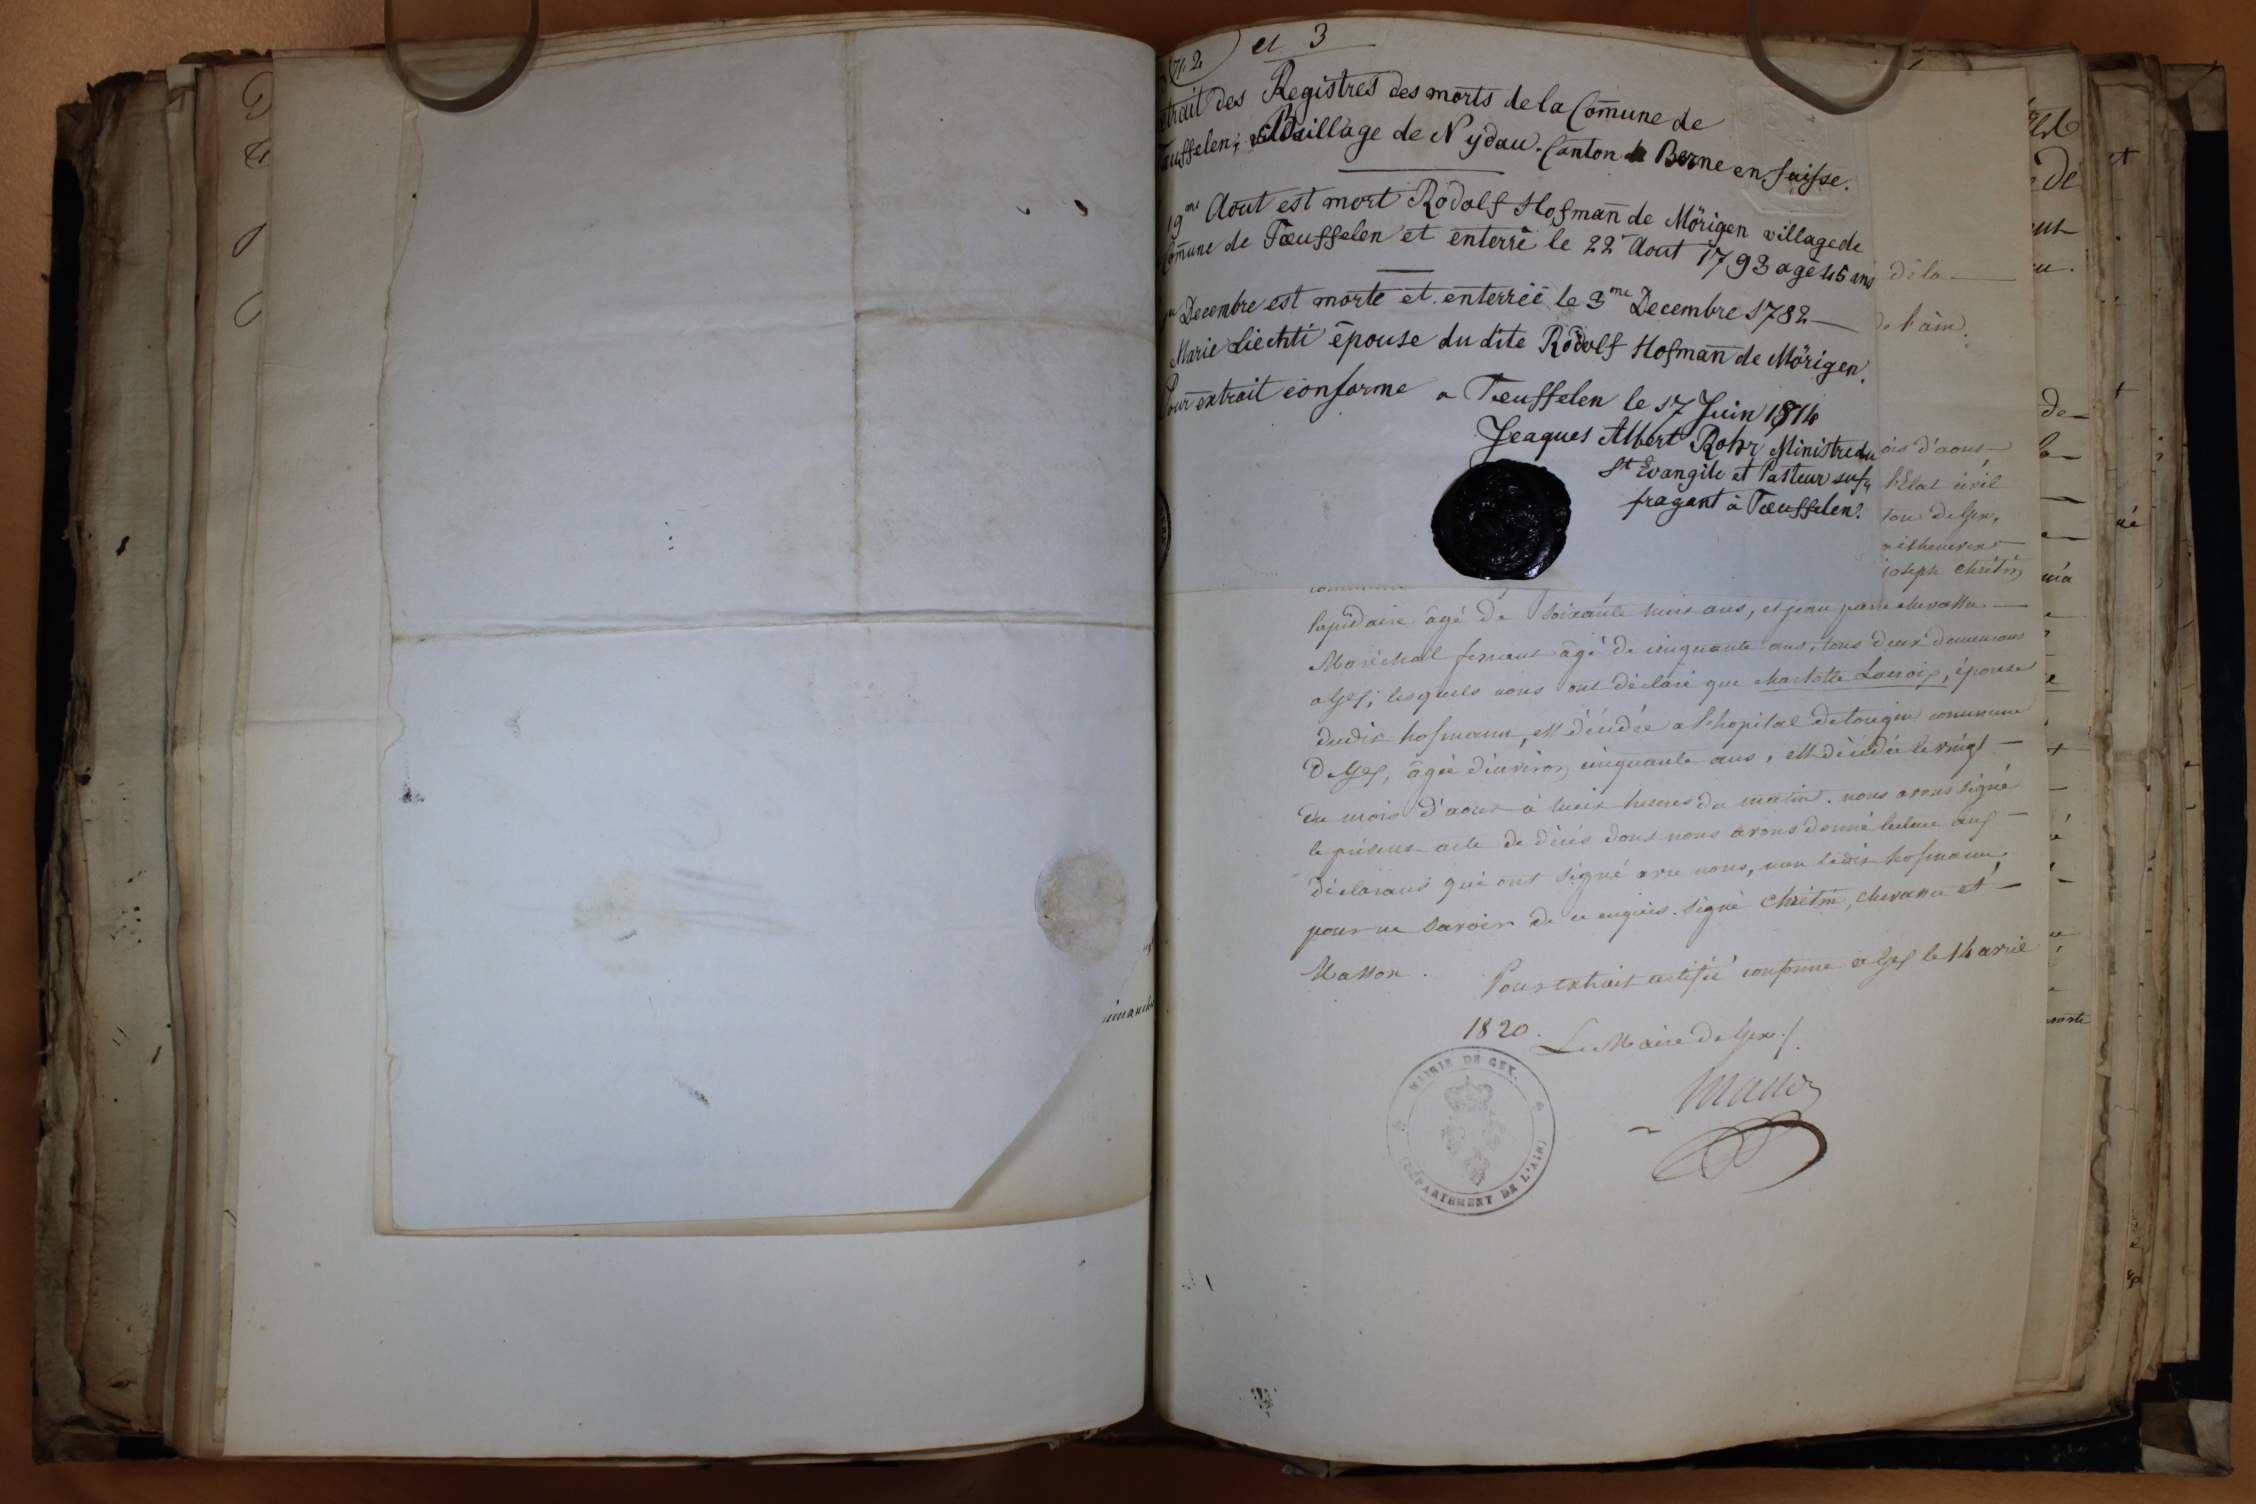 et 3
des Registres des morts de la Com̄une de
Bailliage de Nydau. Canton de Berne en Suisse.
19me Aout est mort Rodolf Hofman̄ de Mörigen village de
Com̄une de Tœuffelen et enterré le 22 Aout 1793 agé 45 ans
Decembre est morte et enterréé le 3me Decembre 1782
Marie Liechti épouse du dite Rodolf Hofman̄ de Mörigen.
Pour extrait conforme a Tœuffelen le 17 Juin 1814
Jeaques Albert Rohr Ministre du
St Evangile et Pasteur suf,
fragant à Tœuffelen.
de la
de l'ain.
d'aout
l'Etat civil
de Gex,
joseph chrétin
lapidaire âgé de soixante huit ans, et jean pierre chevassu
Maréchal ferrant âgé de cinquante ans, tous deux
a Gex; lesquels nous ont déclaré que charlotte Lacroix, épouse
dudit hofmann, est décédée a l'hopital de tougin commune
de Gex, âgée d'environ cinquante ans, est décédée le vingt
du mois d'aout à huit heures du matin. nous avons signé
le présent acte de décés dont nous avons donné lecture aux
déclarans qui ont signé avec nous, non ledit hofmann,
pour ne savoir de ce enquis. signé chrétin, chevassu et
Masson.
Pour extrait certifié conforme a Gex le 14 avril
1820.
Le Maire de Gex.
MAIRIE DE GEX.
DÉPARTEMENT DE L'AIN